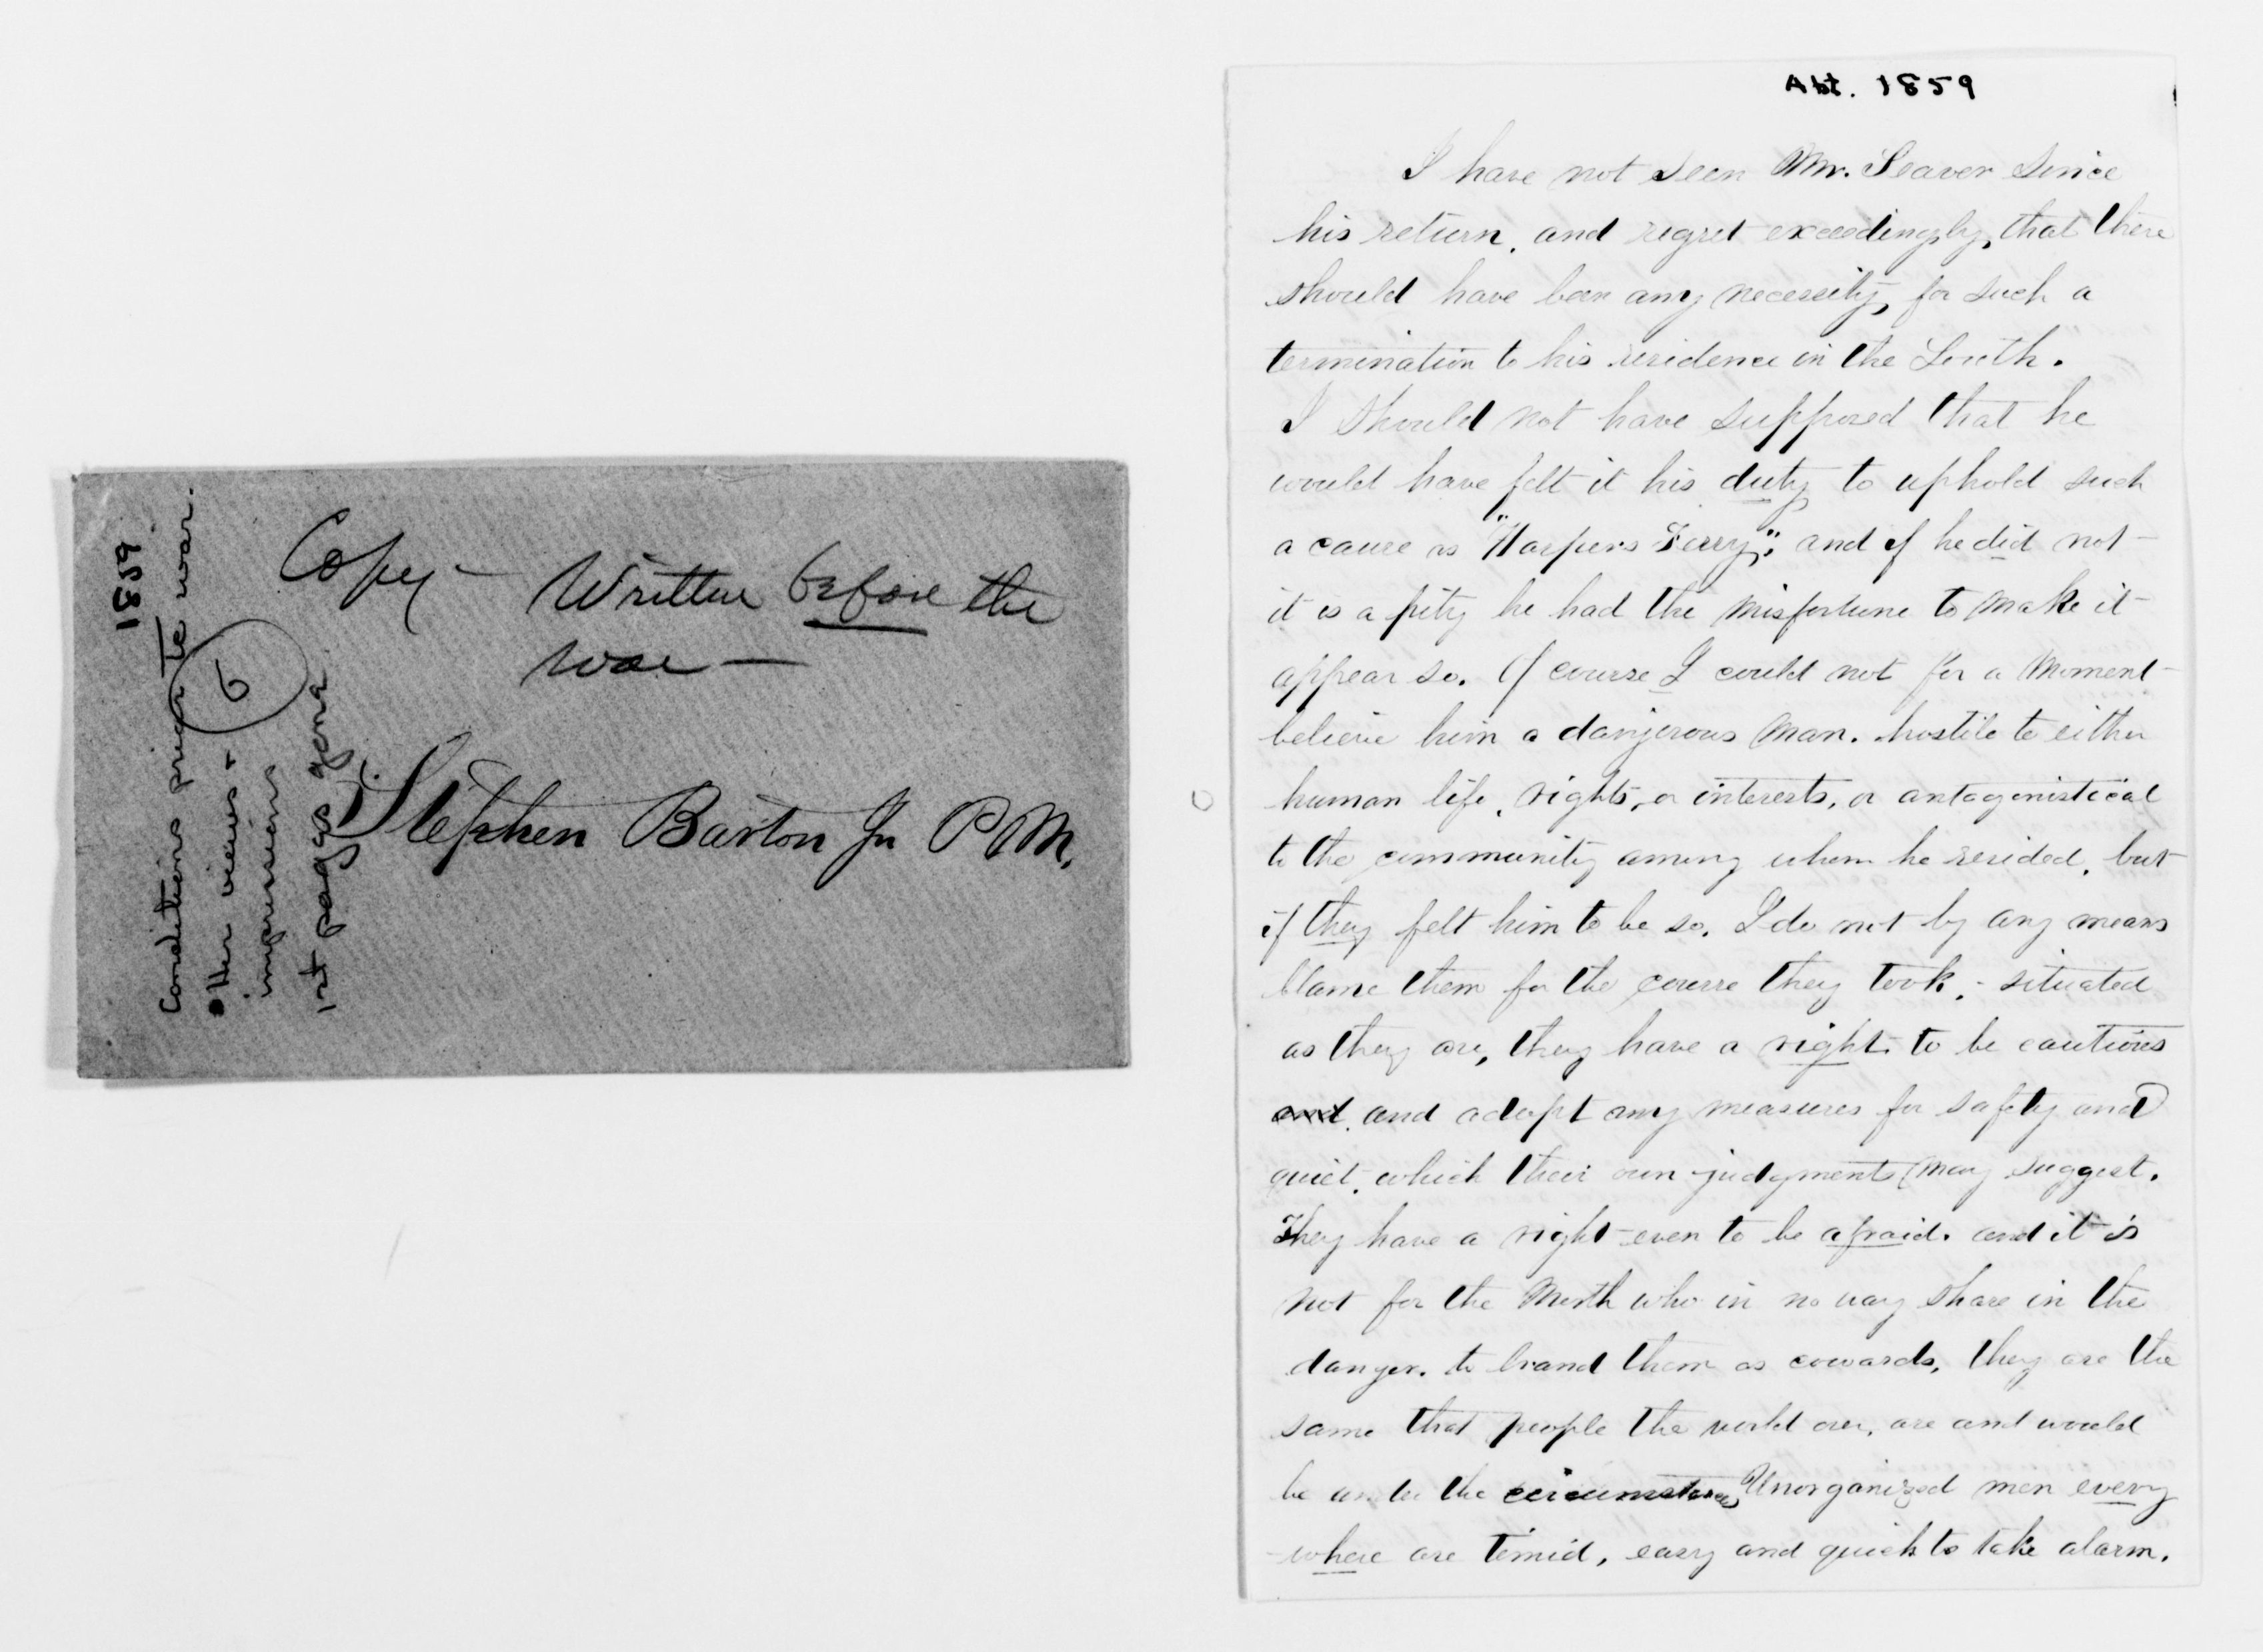 1859
Conditions prior to war.
Her views &
impressions
1st pages gone
6
Copy - Written before the
war —
Stephen Barton Jr P.M.
Abt. 1859
I have not seen Mr. Seaver since
his return, and regret exceedingly, that there
should have been any necessity, for such a
termination to his residence in the South.
I should not have supposed that he
would have felt it his duty to uphold such
a cause as "Harpers Ferry", and if he did not
it is a pity he had the misfortune to make it
appear so. Of course I could not for a moment
believe him a dangerous man. hostile to either
human life, rights, or interests, or antagonistical
to the community among whom he resided, but
if they felt him to be so, I do not by any means
blame them for the course they took, - situated
as they are, they have a right to be cautious
and, and adopt any measures for safety and
quiet, which their own judgments may suggest.
They have a right even to be afraid. and it is
not for the North who in no way share in the
danger. to brand them as cowards, they are the
same that people the world over, are and would
be under the circumstances Unorganized men every
where are timid, easy and quick to take alarm.